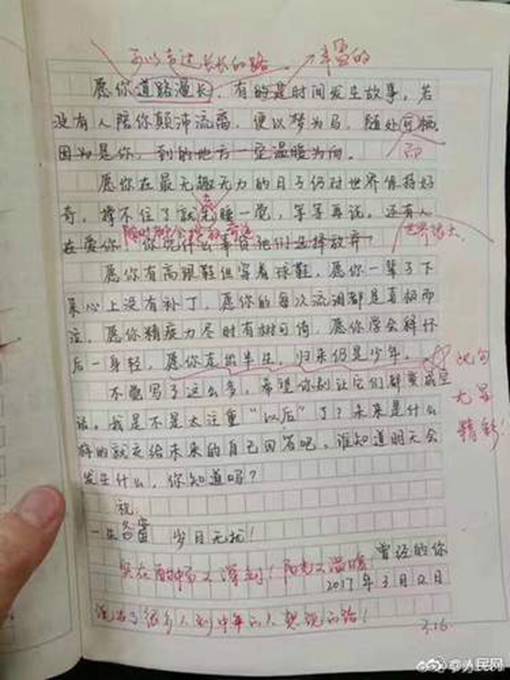 可以走过长长的路 丰富的
愿你道路漫长,有的是时间发生故事,若
没有人陪你颠沛流离,便以梦为马,随处可栖。
因为是你,到的地方一定温暖为向。
而
愿你在最无趣无力的日子仍对世界保持好
奇,撑不住了就先睡一觉,等等再说,还有人
在爱你
你凭什么辜负他们选择放弃?
世界很大
愿你有高跟鞋但穿着球鞋,愿你一辈子下
来心上没有补丁,愿你的每次流泪都是喜极而
泣,愿你精疲力尽时有树可倚,愿你学会释怀
后一身轻,愿你走出半生,归来仍是少年。
此句
尤显
精彩!
不觉写了这么多,希望你别让它们都变成空
话。我是不是太注重“以后”了?未来是什么
样的就交给未来的自己回答吧,谁知道明天会
发生什么,你知道吗?
祝
一生 岁月无忧!
曾经的你
实在酣畅又深刻!阳光又温暖
2017年3月12日
说出了很多人到中年的人想说的话!
3.16
@人民网